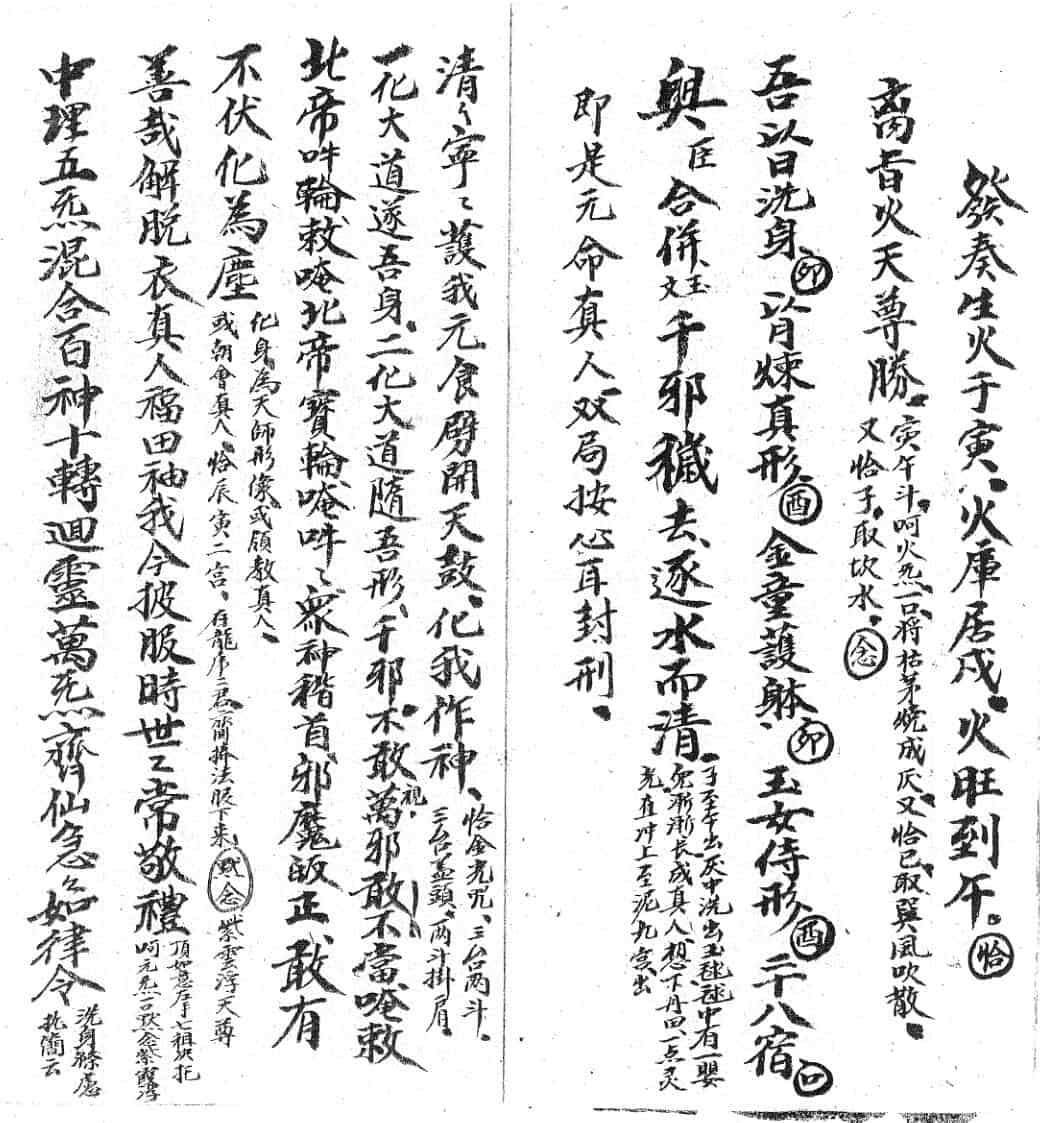 發奏生火于寅、火庫居戌、火旺到午。恰
离音火天尊勝、寅午斗、呵火炁一口、将枯茅燒成灰、又恰巳取巽風吹散、
又恰子、取坎水、念
吾以日洗身卯以月煉真形酉金童護躰、卯玉女侍形酉二十八宿
與臣合併玉文千邪穢去、逐水而清、子至午出灰中洗出玉毬、毬中有一嬰
兒渐渐长成真人、想下丹田、一点灵
光直冲上至泥丸宫出
即是元命真人、双局按心耳封刑、
清々寧々護我元食劈開天鼓、化我作神、恰金光咒、三台两斗、
三台盖頭、两斗掛肩、
一化大道遂吾身、二化大道隨吾形、千邪不敢視、萬邪敢不當、唵敕
北帝吽輪敕唵北帝寶輪唵吽々衆神稽首、邪魔皈正敢有
不伏化為塵化身為天師形像、或領教真人、
或朝會真人、恰辰寅二宫、存龍虎二君、齊捧法服下来、默念紫雲浮天尊
善哉解脱衣真人福田袖我今披服時世々常敬禮頂如意左手七祖訣托
呵元炁一口默念紫霞浮
中理五炁混合百神十轉迴靈萬炁齊仙急々如律令洗身滌慮
执簡云